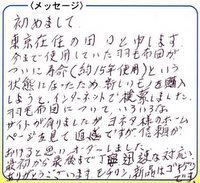 (メッセージ)
初めまして
東京在住の田 と申します
今まで使用していた羽毛布団が
ついに寿命(約15年使用)という
状態になったため新しいものを購入
しようと、インターネットで検索しました。
羽毛布団についていろいろな
サイトが有りましたが ヨネタ様のホーム
ページを見て 直感ですが信頼が
おけると思いオーダーしました。
最初から最後まで丁寧 対応
ありがとうございます